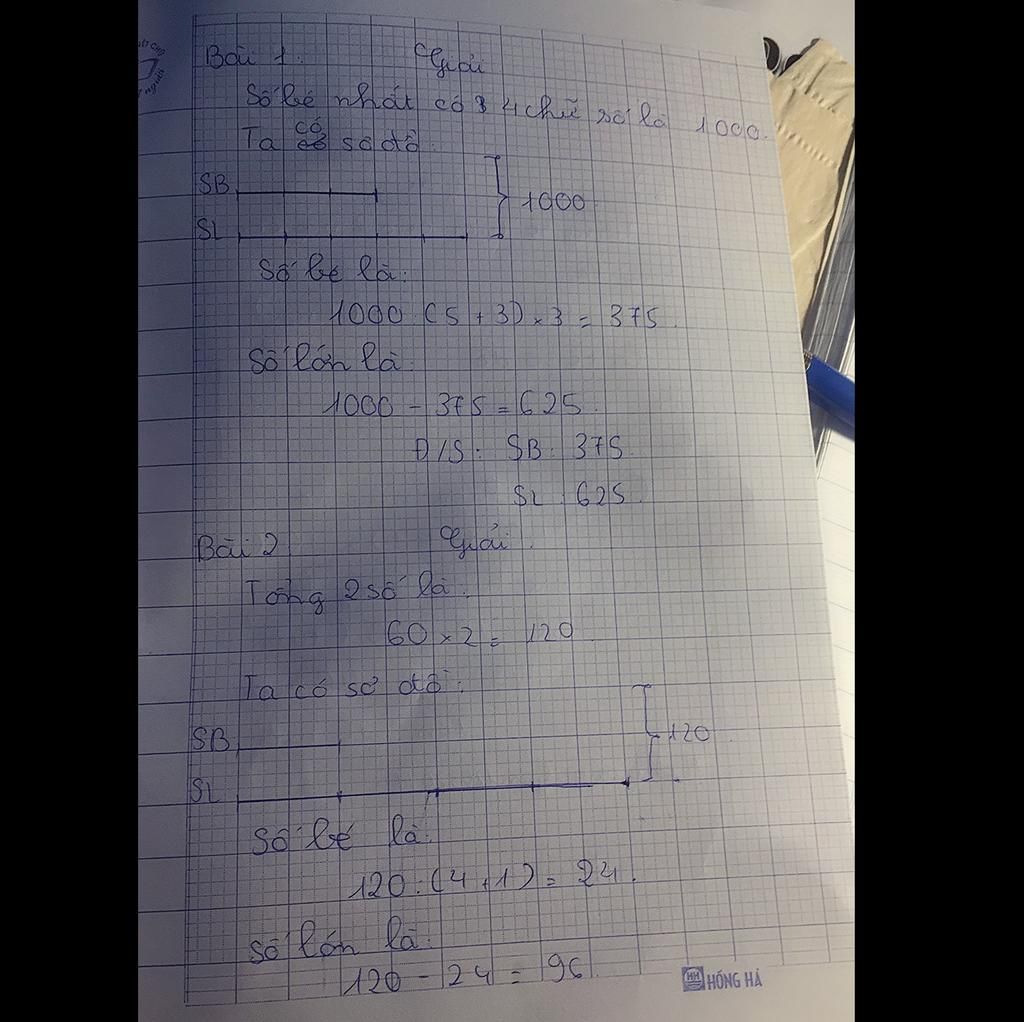 Bài 1. Giải
Số bé nhất có 4 chữ số là 1000.
Ta có sơ đồ:
SB
1000
SL
Số bé là:
1000 : (5 + 3) × 3 = 375.
Số lớn là:
1000 - 375 = 625.
Đ/S: SB: 375.
SL: 625.
Bài 2 Giải.
Tổng 2 số là:
60 × 2 = 120
Ta có sơ đồ:
SB
120
SL
Số bé là:
120 : (4 + 1) = 24.
Số lớn là:
120 - 24 = 96.
HH HỒNG HÀ